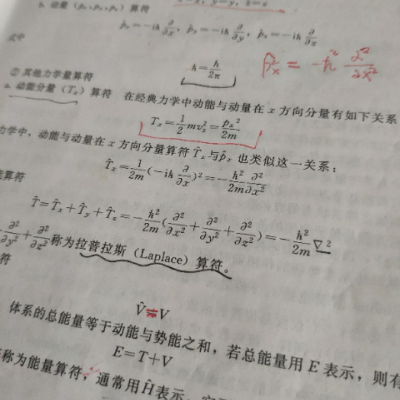 b. 动量 (pₓ, p_y, p_z) 算符
p̂ₓ=-iħ ∂/∂x, p̂_y=-iħ ∂/∂y, p̂_z=-iħ ∂/∂z
式中
ħ=h/2π
p̂ₓ² = -ħ² ∂²/∂x²
② 其他力学量算符
a. 动能分量 (Tₓ) 算符 在经典力学中动能与动量在 x 方向分量有如下关系
Tₓ=1/2 mvₓ²=pₓ²/2m
力学中，动能与动量在 x 方向分量算符 T̂ₓ 与 p̂ₓ 也类似这一关系：
T̂ₓ=1/2m(-iħ ∂/∂x)²=-ħ²/2m ∂²/∂x²
算符
T̂=T̂ₓ+T̂_y+T̂_z=-ħ²/2m(∂²/∂x²+∂²/∂y²+∂²/∂z²)=-ħ²/2m ∇²
∂²/∂y²+∂²/∂z² 称为拉普拉斯 (Laplace) 算符。
符
V̂=V
体系的总能量等于动能与势能之和，若总能量用 E 表示，则有
E=T+V
称为能量算符，通常用Ĥ表示